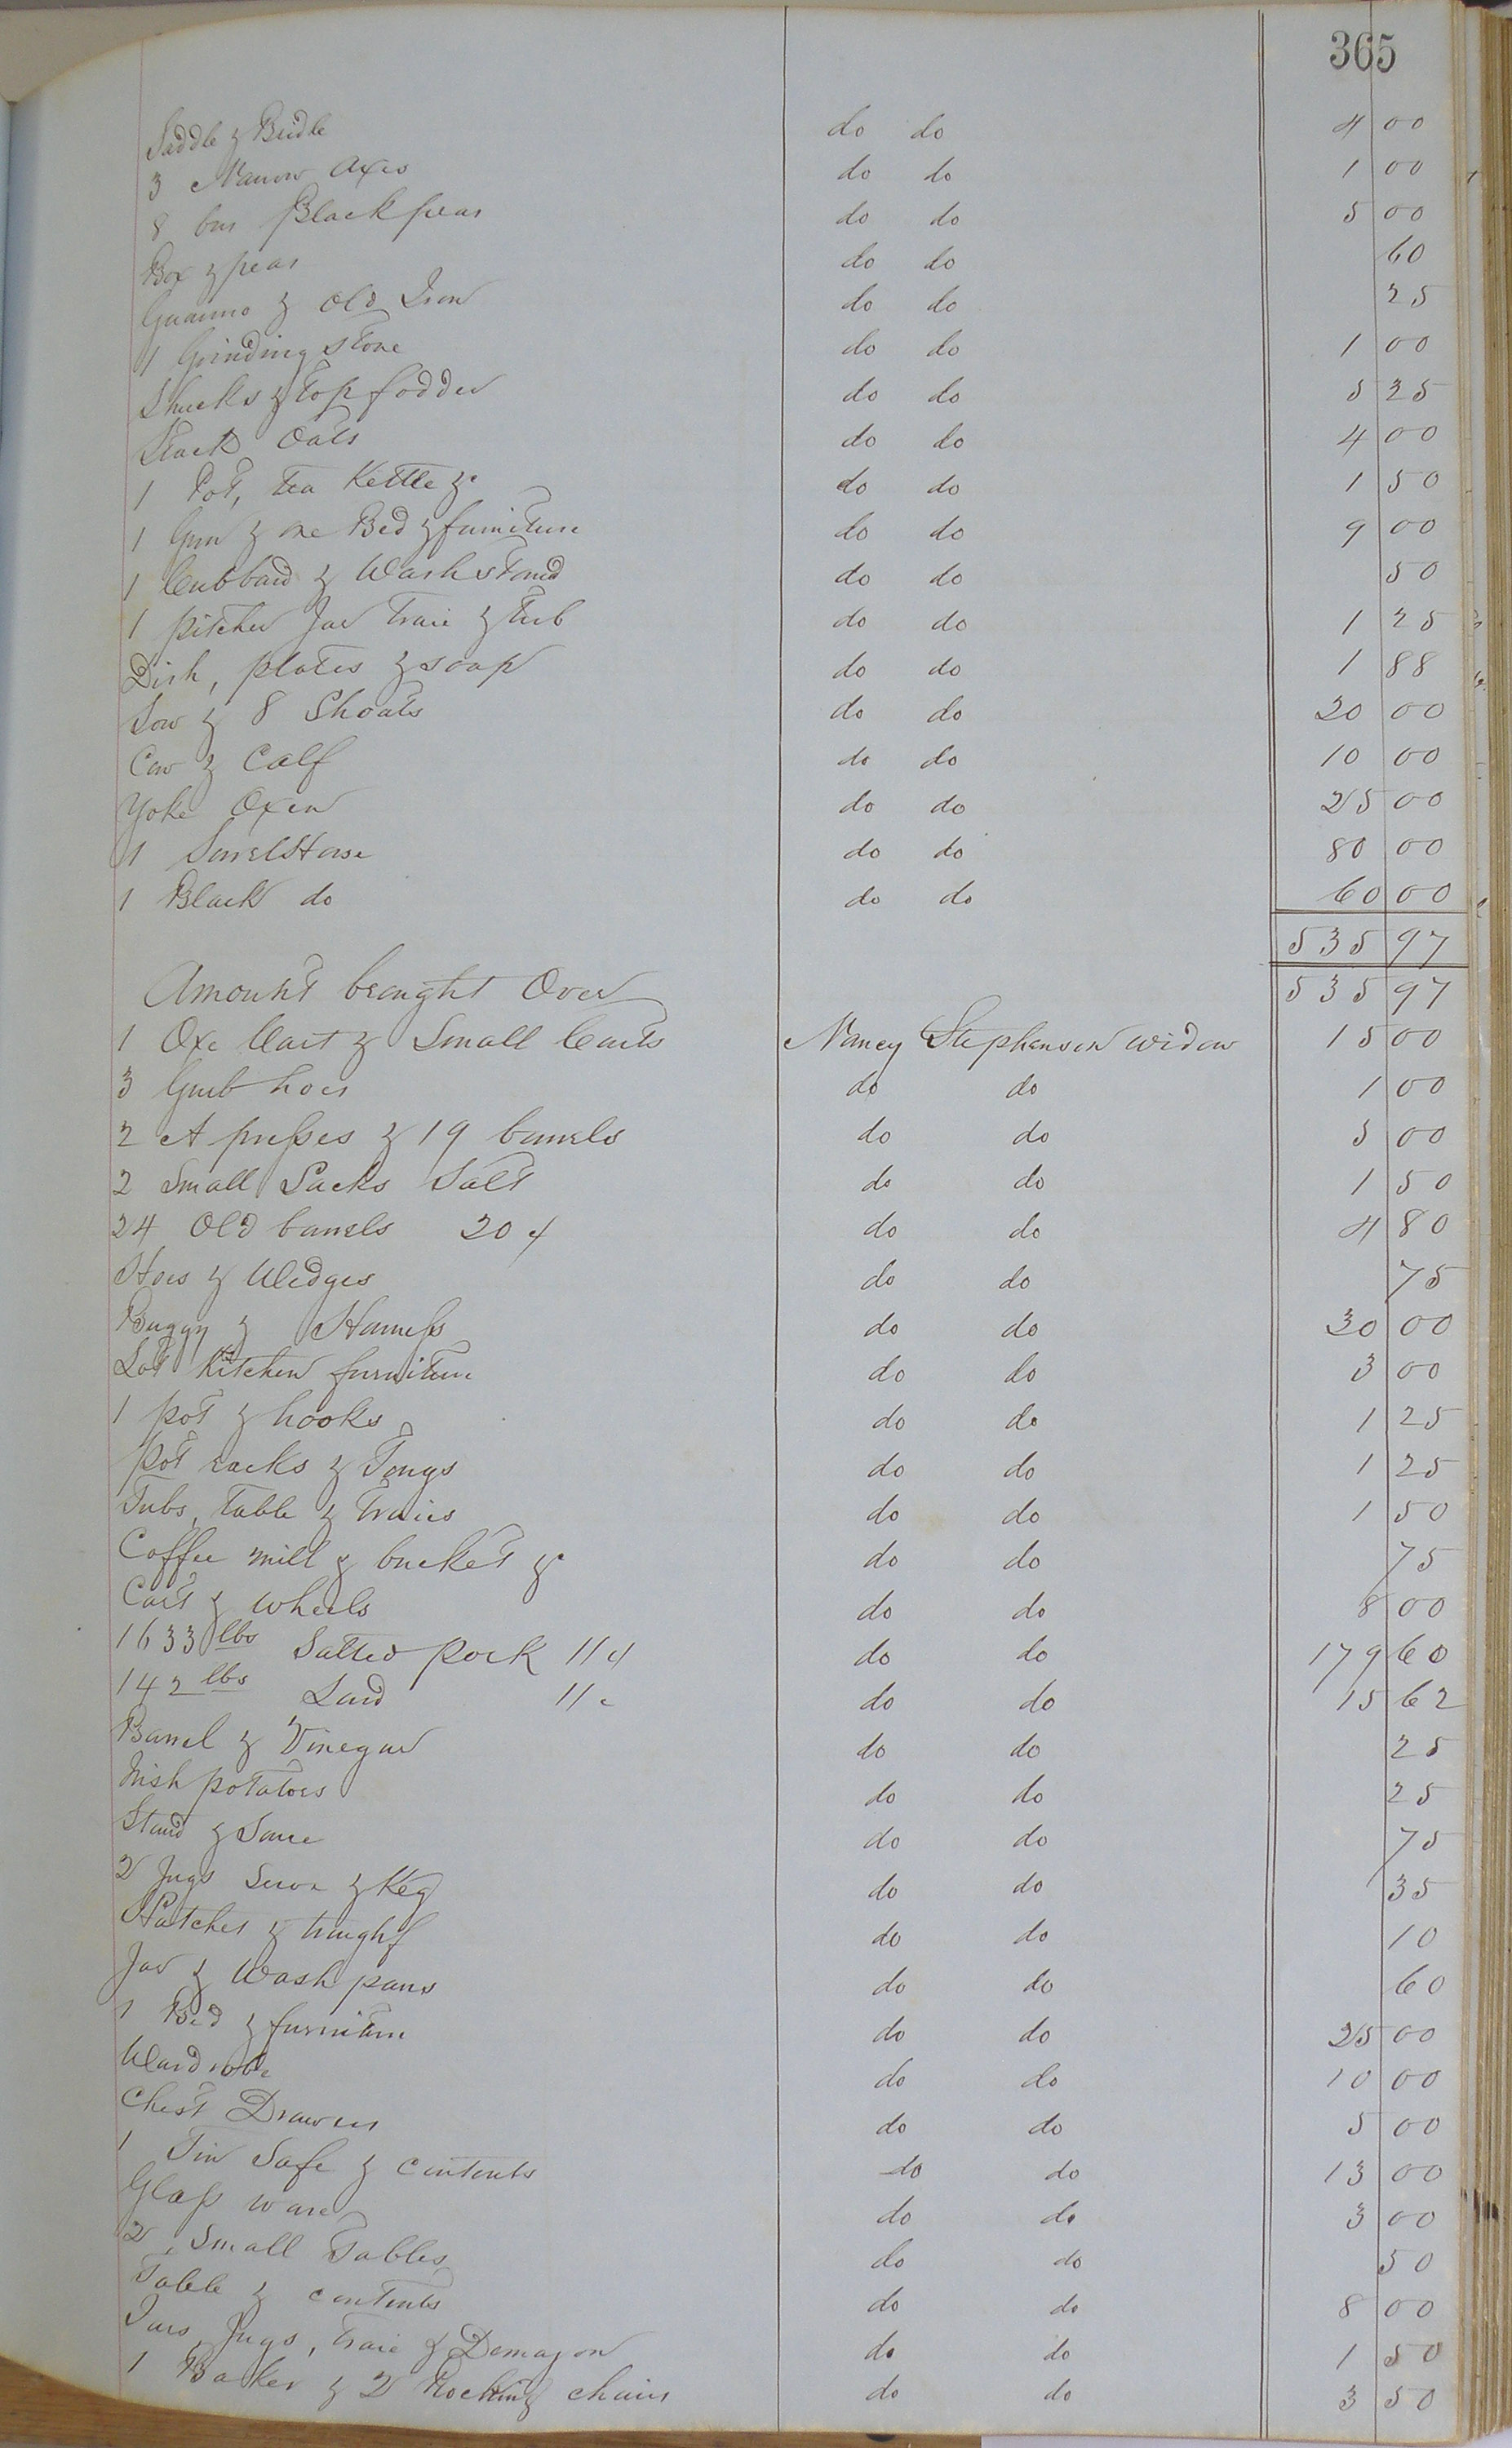 365
Saddle & Bridle do do 4 00
3 Narrow Axes do do 1 00
8 bus Black peas do do 5 00
Box & peas do do 60
Guanno & Old Iron do do 25
1 Grinding stone do do 1 00
Shucks & top fodder do do 5 25
Stack Oats do do 4 00
1 Pot, tea Kettle &c do do 1 50
1 Gun & one Bed & furniture do do 9 00
1 Cubbard & Wash stand do do 50
1 pitcher Jar Traie & Tub do do 1 25
Dish, plates & soap do do 1 88
Sow & 8 Shoats do do 20 00
Cow & Calf do do 10 00
Yoke Oxen do do 25 00
1 Sorrel Horse do do 80 00
1 Black do do do 60 00
535 97
Amount brought Over 535 97
1 Oxe Cart & Small Carts Nancy Stephenson widow 15 00
3 Grub hoes do do 1 00
2 A presses & 19 barrels do do 5 00
2 Small Sacks Salt do do 1 50
24 Old barrels 20 c do do 4 80
Hoes & Wedges do do 75
Buggy & Harness do do 30 00
Lot Kitchen furniture do do 3 00
1 pot & hooks do do 1 25
Pot racks & Tongs do do 1 25
Tubs, Table & Traies do do 1 50
Coffee mill & bucket &c do do 75
Cart & wheels do do 8 00
1633 lbs Salted pork 11 c do do 179 60
142 lbs Lard 11 c do do 15 62
Barrel & Vinegar do do 25
Irish potatoes do do 25
Stand & Same do do 75
2 Jugs & Keg do do 35
Hatchet & do do 10
Jar & Wash pans do do 60
1 Bed & furniture do do 25 00
Wardrobe do do 10 00
Chest Drawers do do 5 00
1 Tin Safe & contents do do 13 00
Glass ware do do 3 00
2 Small Tables do do 50
Table & contents do do 8 00
Jars, Jugs, Traie & Demajon do do 1 50
1 Baker & 2 Rocking chairs do do 3 50